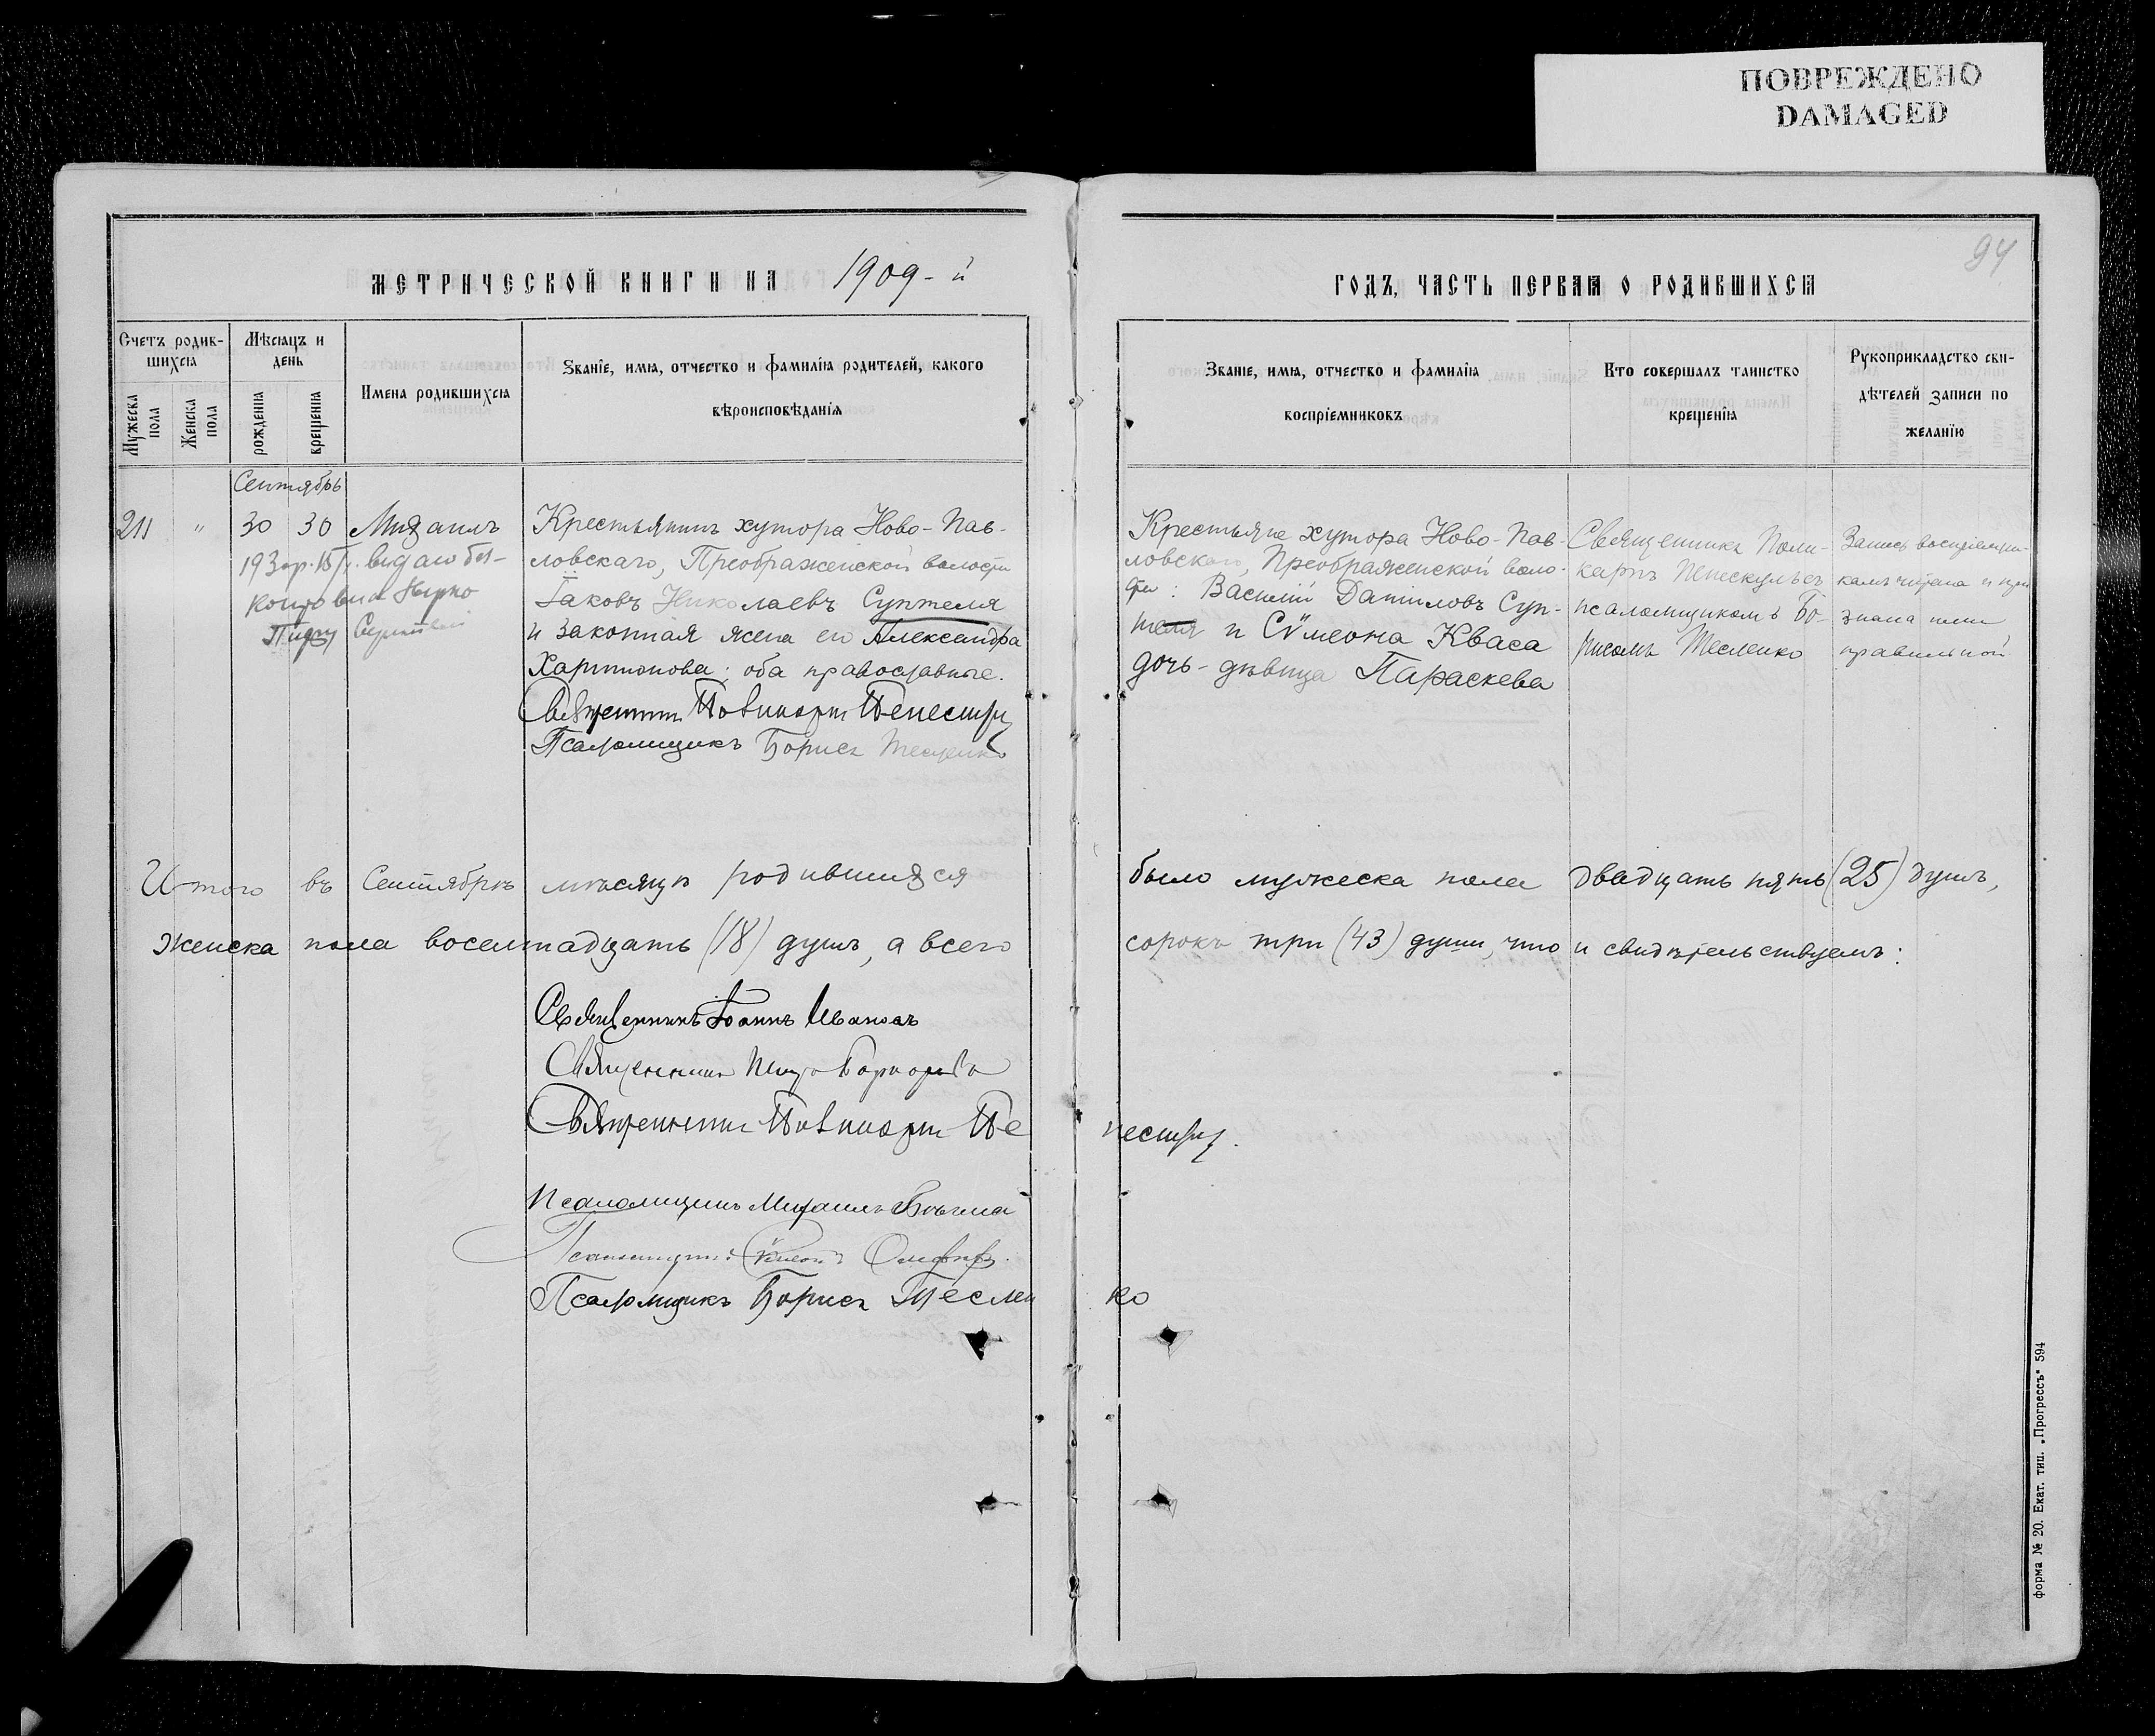 ПОВРЕЖДЕНО
DAMAGED
94
МЕТРИЧЕСКОЙ КНИГИ НА 1909-й
ГОДЪ, ЧАСТЬ ПЕРВАЯ О РОДИВШИХСЯ
Счетъ родив-
шихся
Мужеска пола
Женска пола
Мѣсяцъ и
день
рожденія
крещенія
Имена родившихся
Званіе, имя, отчество и фамилія родителей, какого
вѣроисповѣданія
Званіе, имя, отчество и фамилія
воспріемниковъ
Кто совершалъ таинство
крещенія
Рукоприкладство сви-
дѣтелей записи по
желанію
Сентябрь
211 " 30 30 Михаилъ
193 г. выдано
Крестьянинъ хутора Ново-Пав-
ловскаго, Преображенской волости
Іаковъ Николаевъ Суптеля
и законная жена его Александра
Харитонова; оба православные.
Священникъ
Псаломщикъ Борисъ Тесленко
Крестьяне хутора Ново-Пав-
ловскаго, Преображенской воло-
сти: Василій Даниловъ Суп-
теля и Сѵмеона Кваса
дочь-дѣвица Параскева
Священникъ Поли-
карпъ съ
псаломщикомъ Бо-
рисомъ Тесленко
Запись воспріемни-
камъ читана и при-
знана ими
правильной
Итого въ Сентябрѣ мѣсяцѣ родившихся было мужеска пола двадцать пять (25) душъ,
женска пола восемнадцать (18) душъ, а всего сорокъ три (43) души, что и свидѣтельствуемъ:
Священникъ Іоаннъ Ивановъ
Священникъ
Священникъ
Псаломщикъ Михаилъ
Псаломщикъ
Псаломщикъ Борисъ Тесленко
форма № 20. Екат. тип. „Прогрессъ" 594